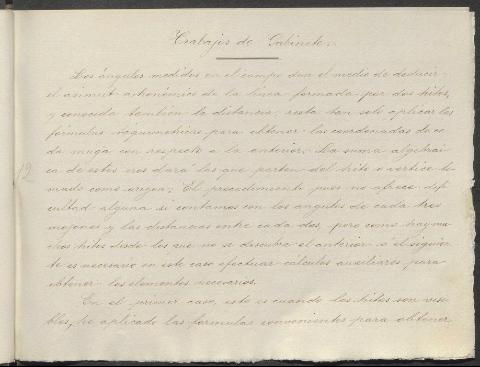 Trabajos de Gabinete.
Los ángulos medidos en el campo dan el medio de deducir
el azimut astronómico de la línea formada por dos hitos,
y conocida también la distancia, resta tan solo aplicar las
fórmulas trigonométricas para obtener las coordenadas de ca
da muga con respecto a la anterior. La suma algebrai
ca de estos nos dará las que parten del hito o vértice to
mado como origen. El procedimiento pues no ofrece difi
cultad alguna si contamos con los ángulos de cada tres
mojones y las distancias entre cada dos, pero como hay mu
chos hitos desde los que no se descubre el anterior o el siguien
te es necesario en este caso efectuar cálculos auxiliares para
obtener los elementos necesarios.
En el primer caso, esto es cuando los hitos son visi
bles, he aplicado las formulas convenientes para obtener